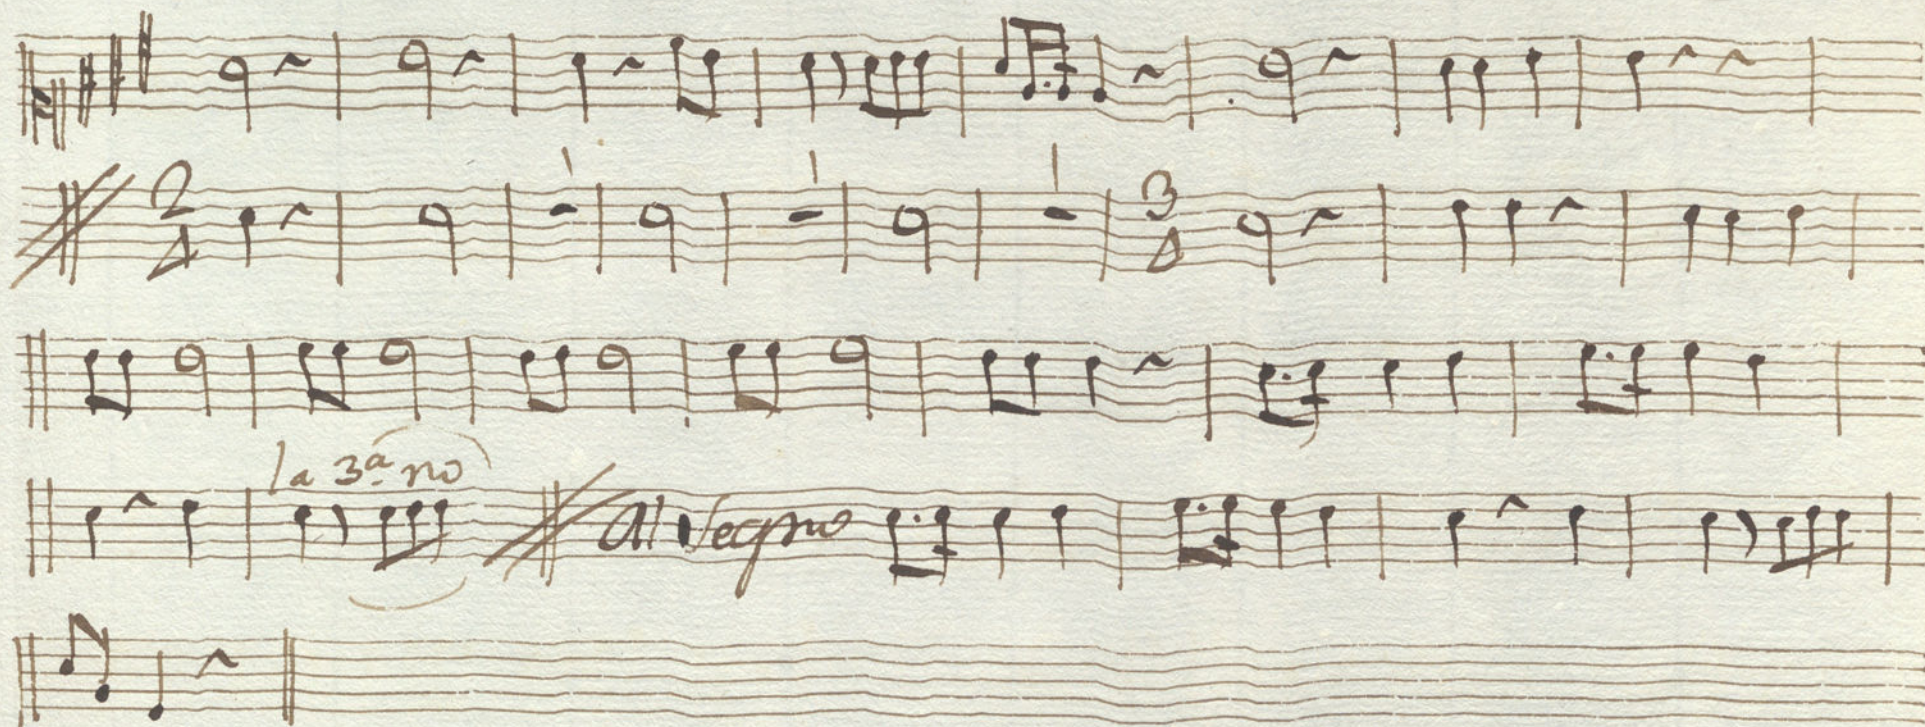 2 4 3 4
la 3ª no
al Segno